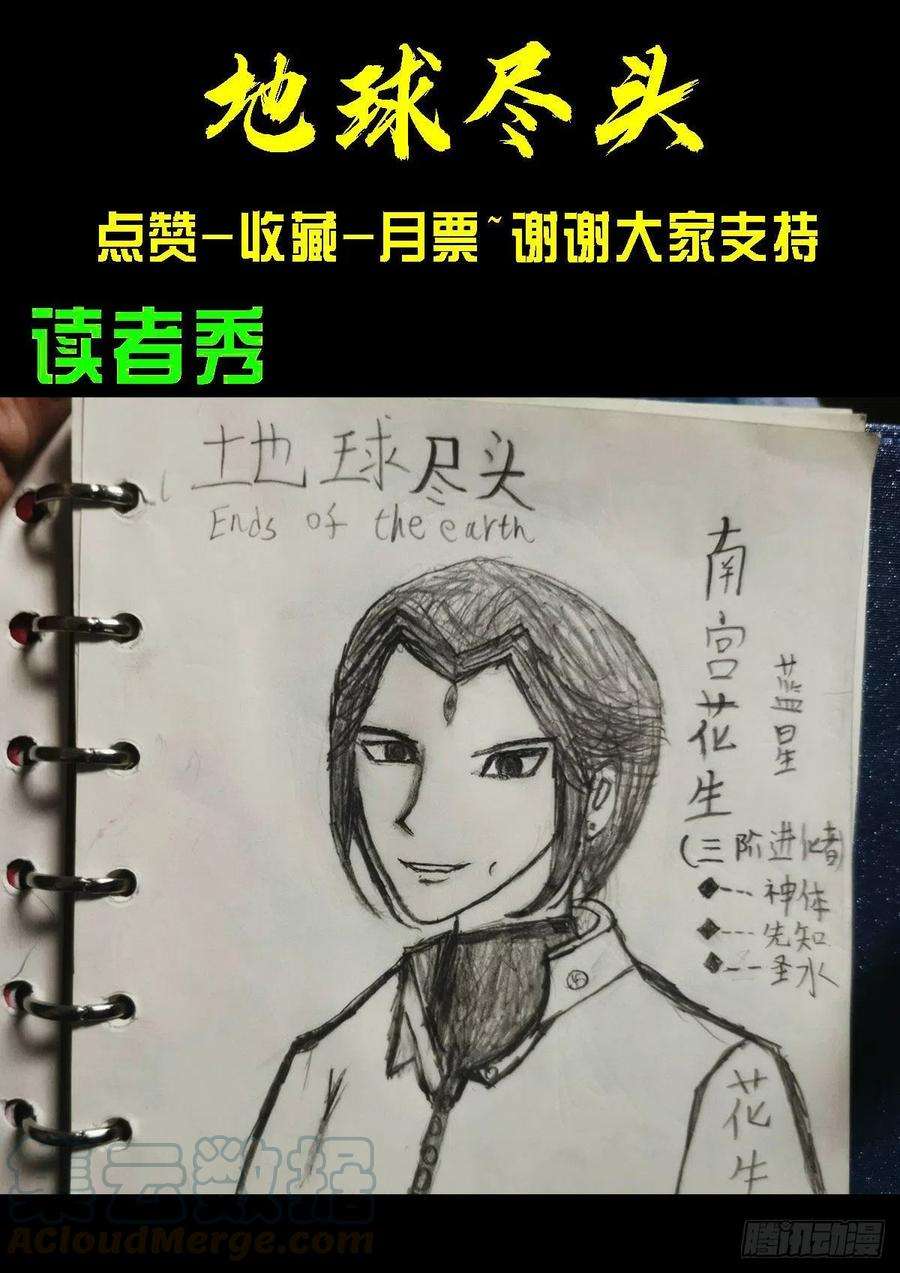 地球尽头
点赞-收藏-月票~谢谢大家支持
读者秀
地球尽头
Ends of the earth
南宫花生
蓝星
(三阶进化者)
◆---神体
◆---先知
◆--圣水
花生
集云数据
ACloudMerge.com
腾讯动漫